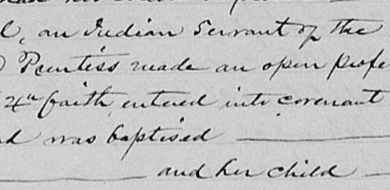 an Indian Servant of the
Prentiss made an open profe
faith, entered into covenant
was baptised
and her child